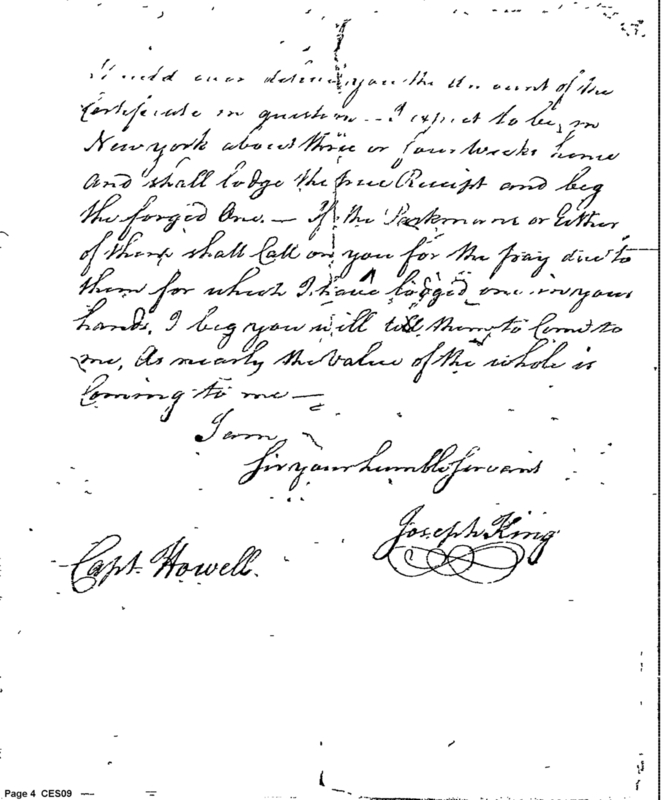 you the amount of the
Certificate in question — I expect to be in
New york about three or four weeks hence
and shall lodge the true Receipt and beg
the forged One. — If the Parkmans or Either
of them shall Call on you for the pay due to
them for which I have lodged one in your
hands, I beg you will tell them to Come to
me, As nearly the Value of the whole is
Coming to me —
I am
Sir your humble Servant
Joseph King
Capt. Howell.
Page 4 CES09